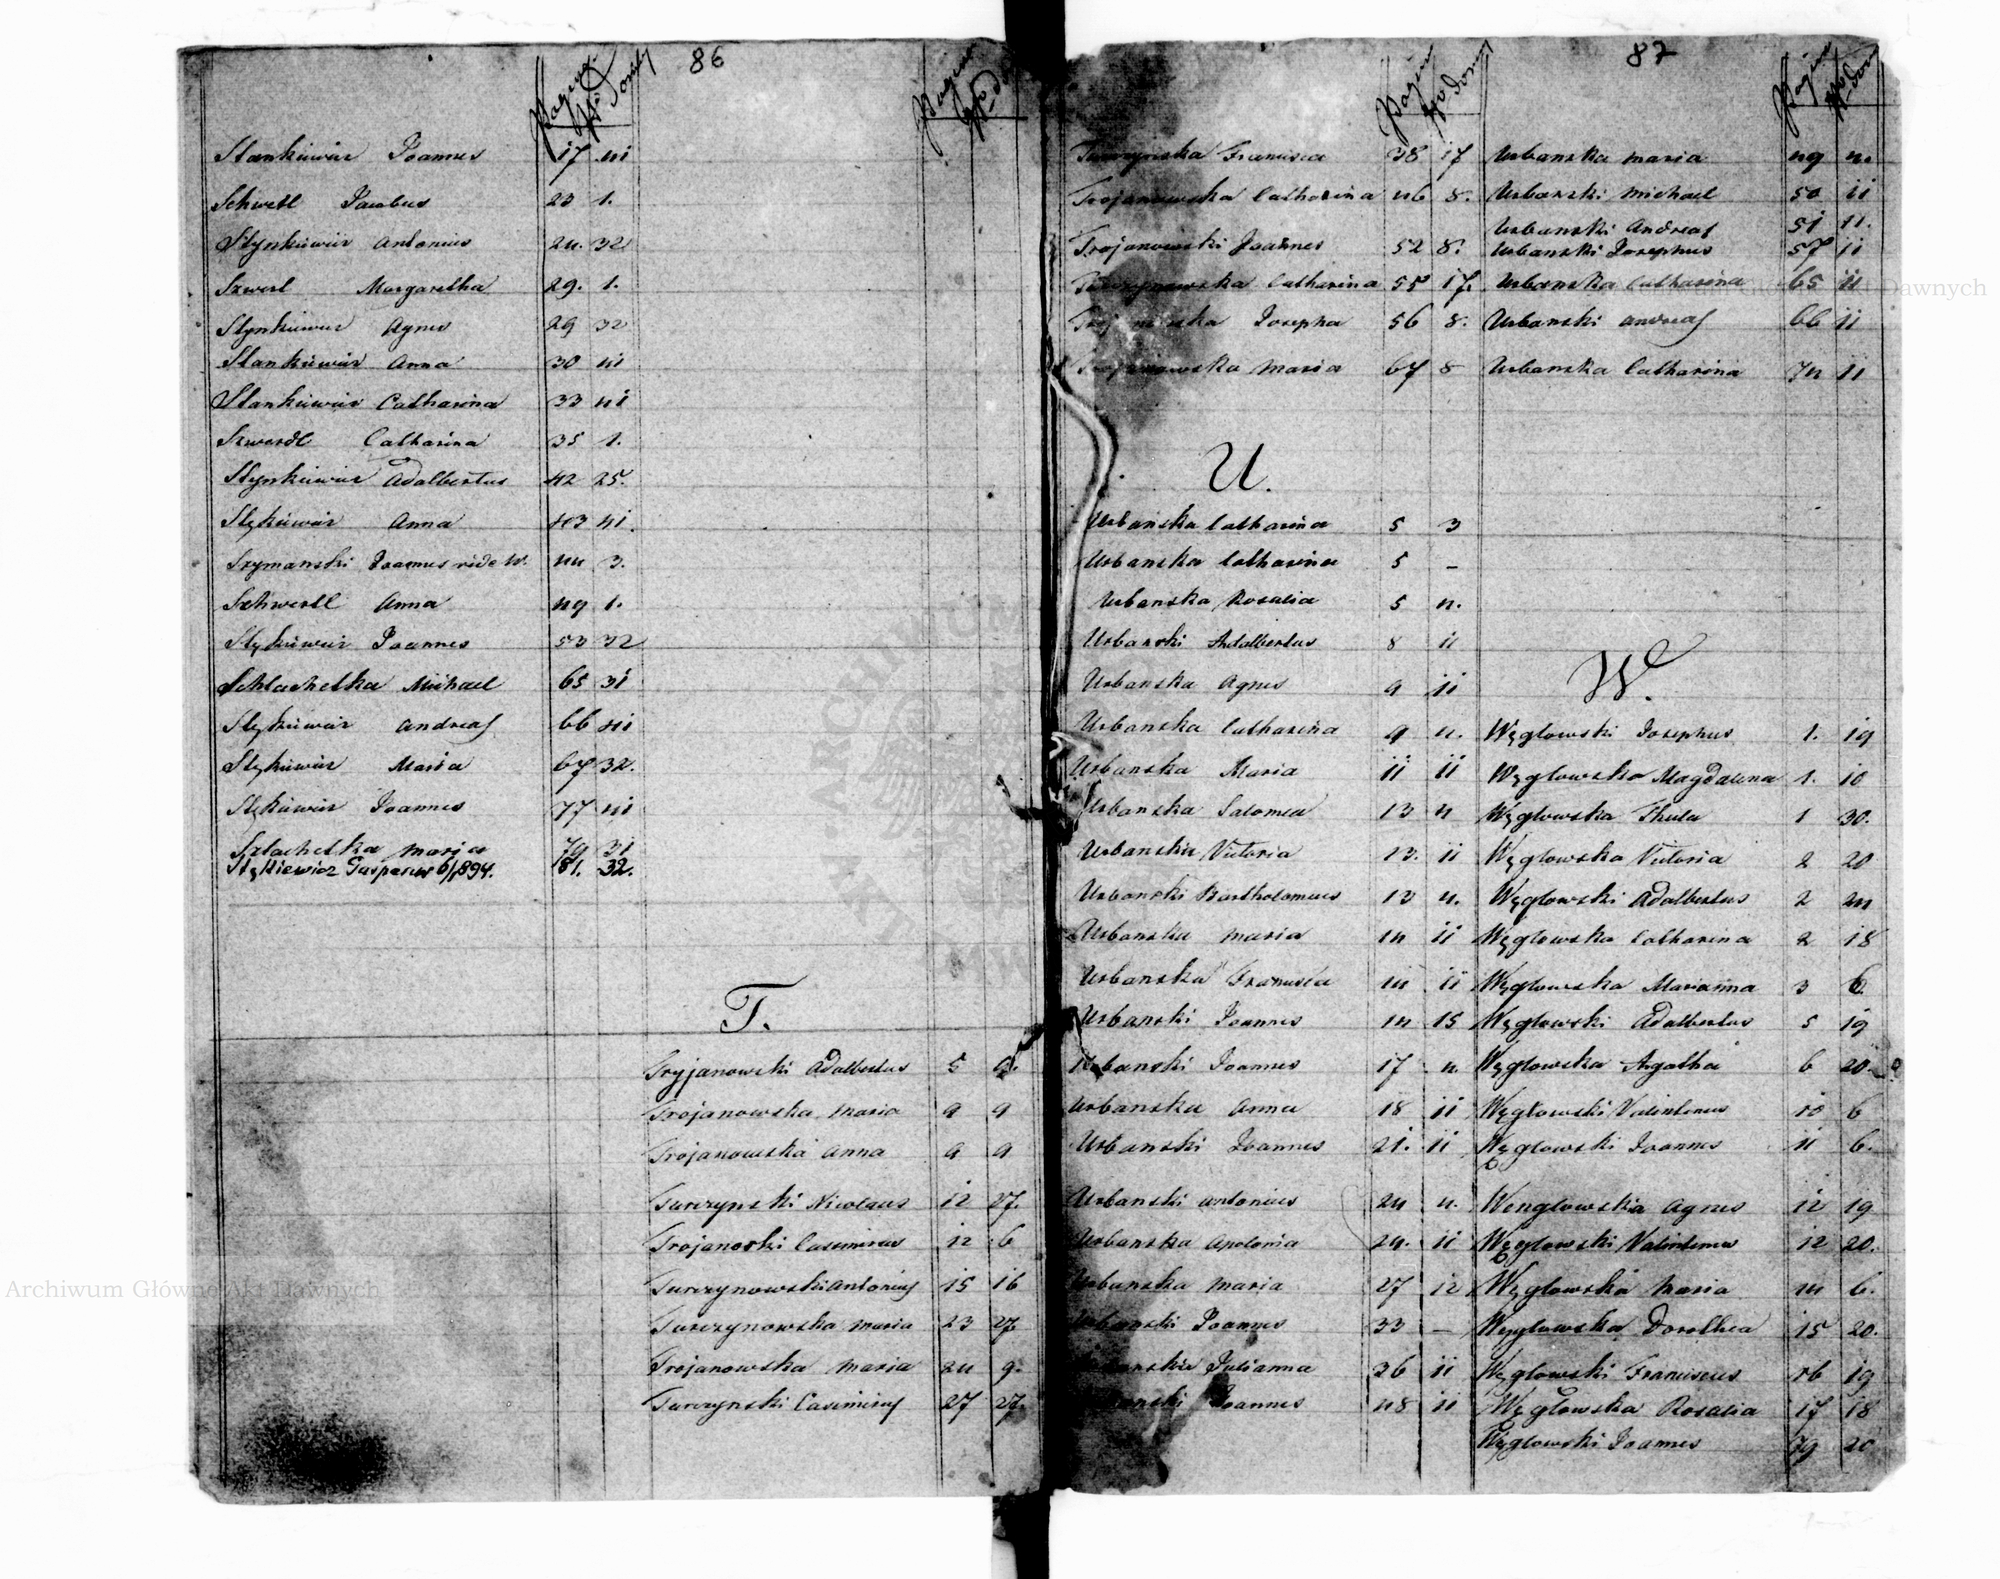 86
Pagina No Domus
Stankiewicz Joannes 17 41
Schwerl Jacobus 23 1.
Stynkiewicz Antonius 24. 32
Szwerl Margaretha 29. 1.
Stynkiewicz Agnes 29 32
Stankiewicz Anna 30 41
Stankiewicz Catharina 33 41
Szwerdl Catharina 35 1.
Stynkiewicz Adalbertus 42 25.
Stękiewicz Anna 43 41.
Szymanski Joannes vide W. 44 3.
Schwertl Anna 49 1.
Stękiewicz Joannes 53 32
Schlachetka Michael 65 31
Stękiewicz Andreas 66 41
Stękiewicz Maria 67 32.
Stękiewicz Joannes 77 41
Szlachetka Marja 79 31
Stękiewicz Gasparus 6/1894. 81. 32.
Pagina No dom
T.
Tryjanowski Adalbertus 5 9.
Trojanowska Maria 9 9
Trojanowska Anna 9 9
Turczynski Nicolaus 12 27.
Trojanoski Casimirus 12 6
Turczynowski Antonius 15 16
Turczynowska Maria 23 27.
Trojanowska Maria 24 9.
Turczynski Casimirus 27 27.
87
Pagina No dom
Turczynska Francisca 38 17
Trojanowska Catharina 46 8.
Trojanowski Joannes 52 8.
Turczynowska Catharina 55 17.
Josepha 56 8.
Trojanowska Maria 67 8
U.
Urbanska Catharina 5 3
Urbanska Catharina 5 –
Urbanska Rosalia 5 4.
Urbanski Adalbertus 8 11
Urbanska Agnes 9 11
Urbanska Catharina 9 4.
Urbanska Maria 11 11
Urbanska Salomea 13 4
Urbanska Victoria 13. 11
Urbanski Bartholomeus 13 4.
Urbanska Maria 14 11
Urbanska Francisca 14 11
Urbanski Joannes 14 15
Urbanski Joannes 17 4.
Urbanska Anna 18 11
Urbanski Joannes 21. 11
Urbanski Antonius 24 4.
Urbanska Apolonia 24. 11
Urbanska Maria 27 12
Urbanski Joannes 33 –
Urbanska Julianna 36 11
Urbanski Joannes 48 11
Pagina No dom
Urbanska Maria 49 4.
Urbanski Michael 50 11
Urbanski Andreas 51 11.
Urbanski Josephus 57 11
Urbanska Catharina 65 11
Urbanski Andreas 66 11
Urbanska Catharina 74 11
W.
Węglowski Josephus 1. 19
Węglowska Magdalena 1. 10
Węglowska Thecla 1 30.
Węglowska Victoria 2 20
Węglowski Adalbertus 2 24
Węglowska Catharina 2 18
Węglowska Marianna 3 6.
Węglowski Adalbertus 5 19
Węglowska Agatha 6 20.
Węglowski Valentinus 10 6
Węglowski Joannes 11 6.
Wenglowska Agnes 12 19
Węglowski Valentinus 12 20.
Węglowska Maria 14 6.
Węglowska Dorothea 15 20.
Węglowski Franciscus 16 19
Węglowska Rosalia 17 18
Węglowski Joannes 79 20
Archiwum Główne Akt Dawnych